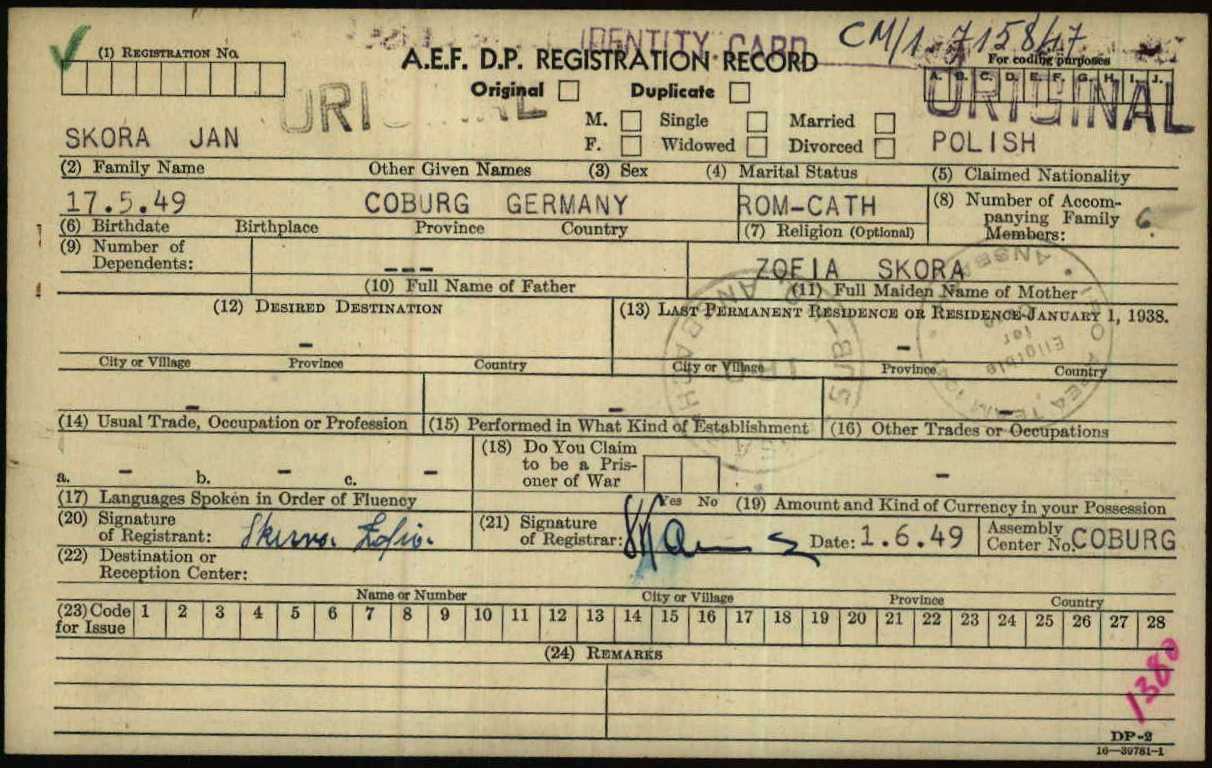 IDENTITY CARD
CM/1-715847
(1) REGISTRATION NO.
A.E.F. D.P. REGISTRATION RECORD
For coding purposes
A. B. C. D. E. F. G. H. I. J.
Original Duplicate
ORIGINAL
M. Single Married
F. Widowed Divorced
SKORA JAN POLISH
(2) Family Name Other Given Names (3) Sex (4) Marital Status (5) Claimed Nationality
17.5.49 COBURG GERMANY ROM-CATH
(8) Number of Accom-
panying Family
Members: 6
(6) Birthdate Birthplace Province Country (7) Religion (Optional)
(9) Number of
Dependents:
--- ZOFIA SKORA
(10) Full Name of Father (11) Full Maiden Name of Mother
(12) DESIRED DESTINATION (13) LAST PERMANENT RESIDENCE OR RESIDENCE JANUARY 1, 1938.
- -
City or Village Province Country City or Village Province Country
- - -
(14) Usual Trade, Occupation or Profession (15) Performed in What Kind of Establishment (16) Other Trades or Occupations
(18) Do You Claim
to be a Pris-
oner of War
a. - b. - c. - -
(17) Languages Spoken in Order of Fluency Yes No (19) Amount and Kind of Currency in your Possession
(20) Signature
of Registrant:
(21) Signature
of Registrar:
Date: 1.6.49
Assembly
Center No. COBURG
(22) Destination or
Reception Center:
Name or Number City or Village Province Country
(23) Code
for Issue
1 2 3 4 5 6 7 8 9 10 11 12 13 14 15 16 17 18 19 20 21 22 23 24 25 26 27 28
(24) REMARKS
1380
DP-2
16—39781-1